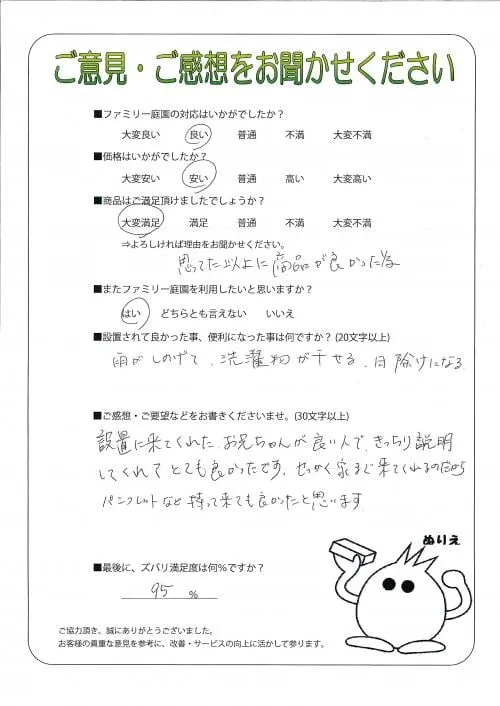 ご意見・ご感想をお聞かせください
■ファミリー庭園の対応はいかがでしたか？
大変良い 良い 普通 不満 大変不満
■価格はいかがでしたか？
大変安い 安い 普通 高い 大変高い
■商品はご満足頂けましたでしょうか？
大変満足 満足 普通 不満 大変不満
⇒よろしければ理由をお聞かせください。
思ってた以上に商品が良かった為
■またファミリー庭園を利用したいと思いますか？
はい どちらとも言えない いいえ
■設置されて良かった事、便利になった事は何ですか？(20文字以上)
雨がしのげて、洗濯物が干せる、日除けになる
■ご感想・ご要望などをお書きくださいませ。(30文字以上)
設置に来てくれた、お兄ちゃんが良い人で、きっちり説明
してくれてとても良かったです。せっかく家まで来てくれるのだから
パンフレットなど持って来ても良かったと思います
ぬりえ
■最後に、ズバリ満足度は何％ですか？
95 %
ご協力頂き、誠にありがとうございました。
お客様の貴重な意見を参考に、改善・サービスの向上に活かして参ります。